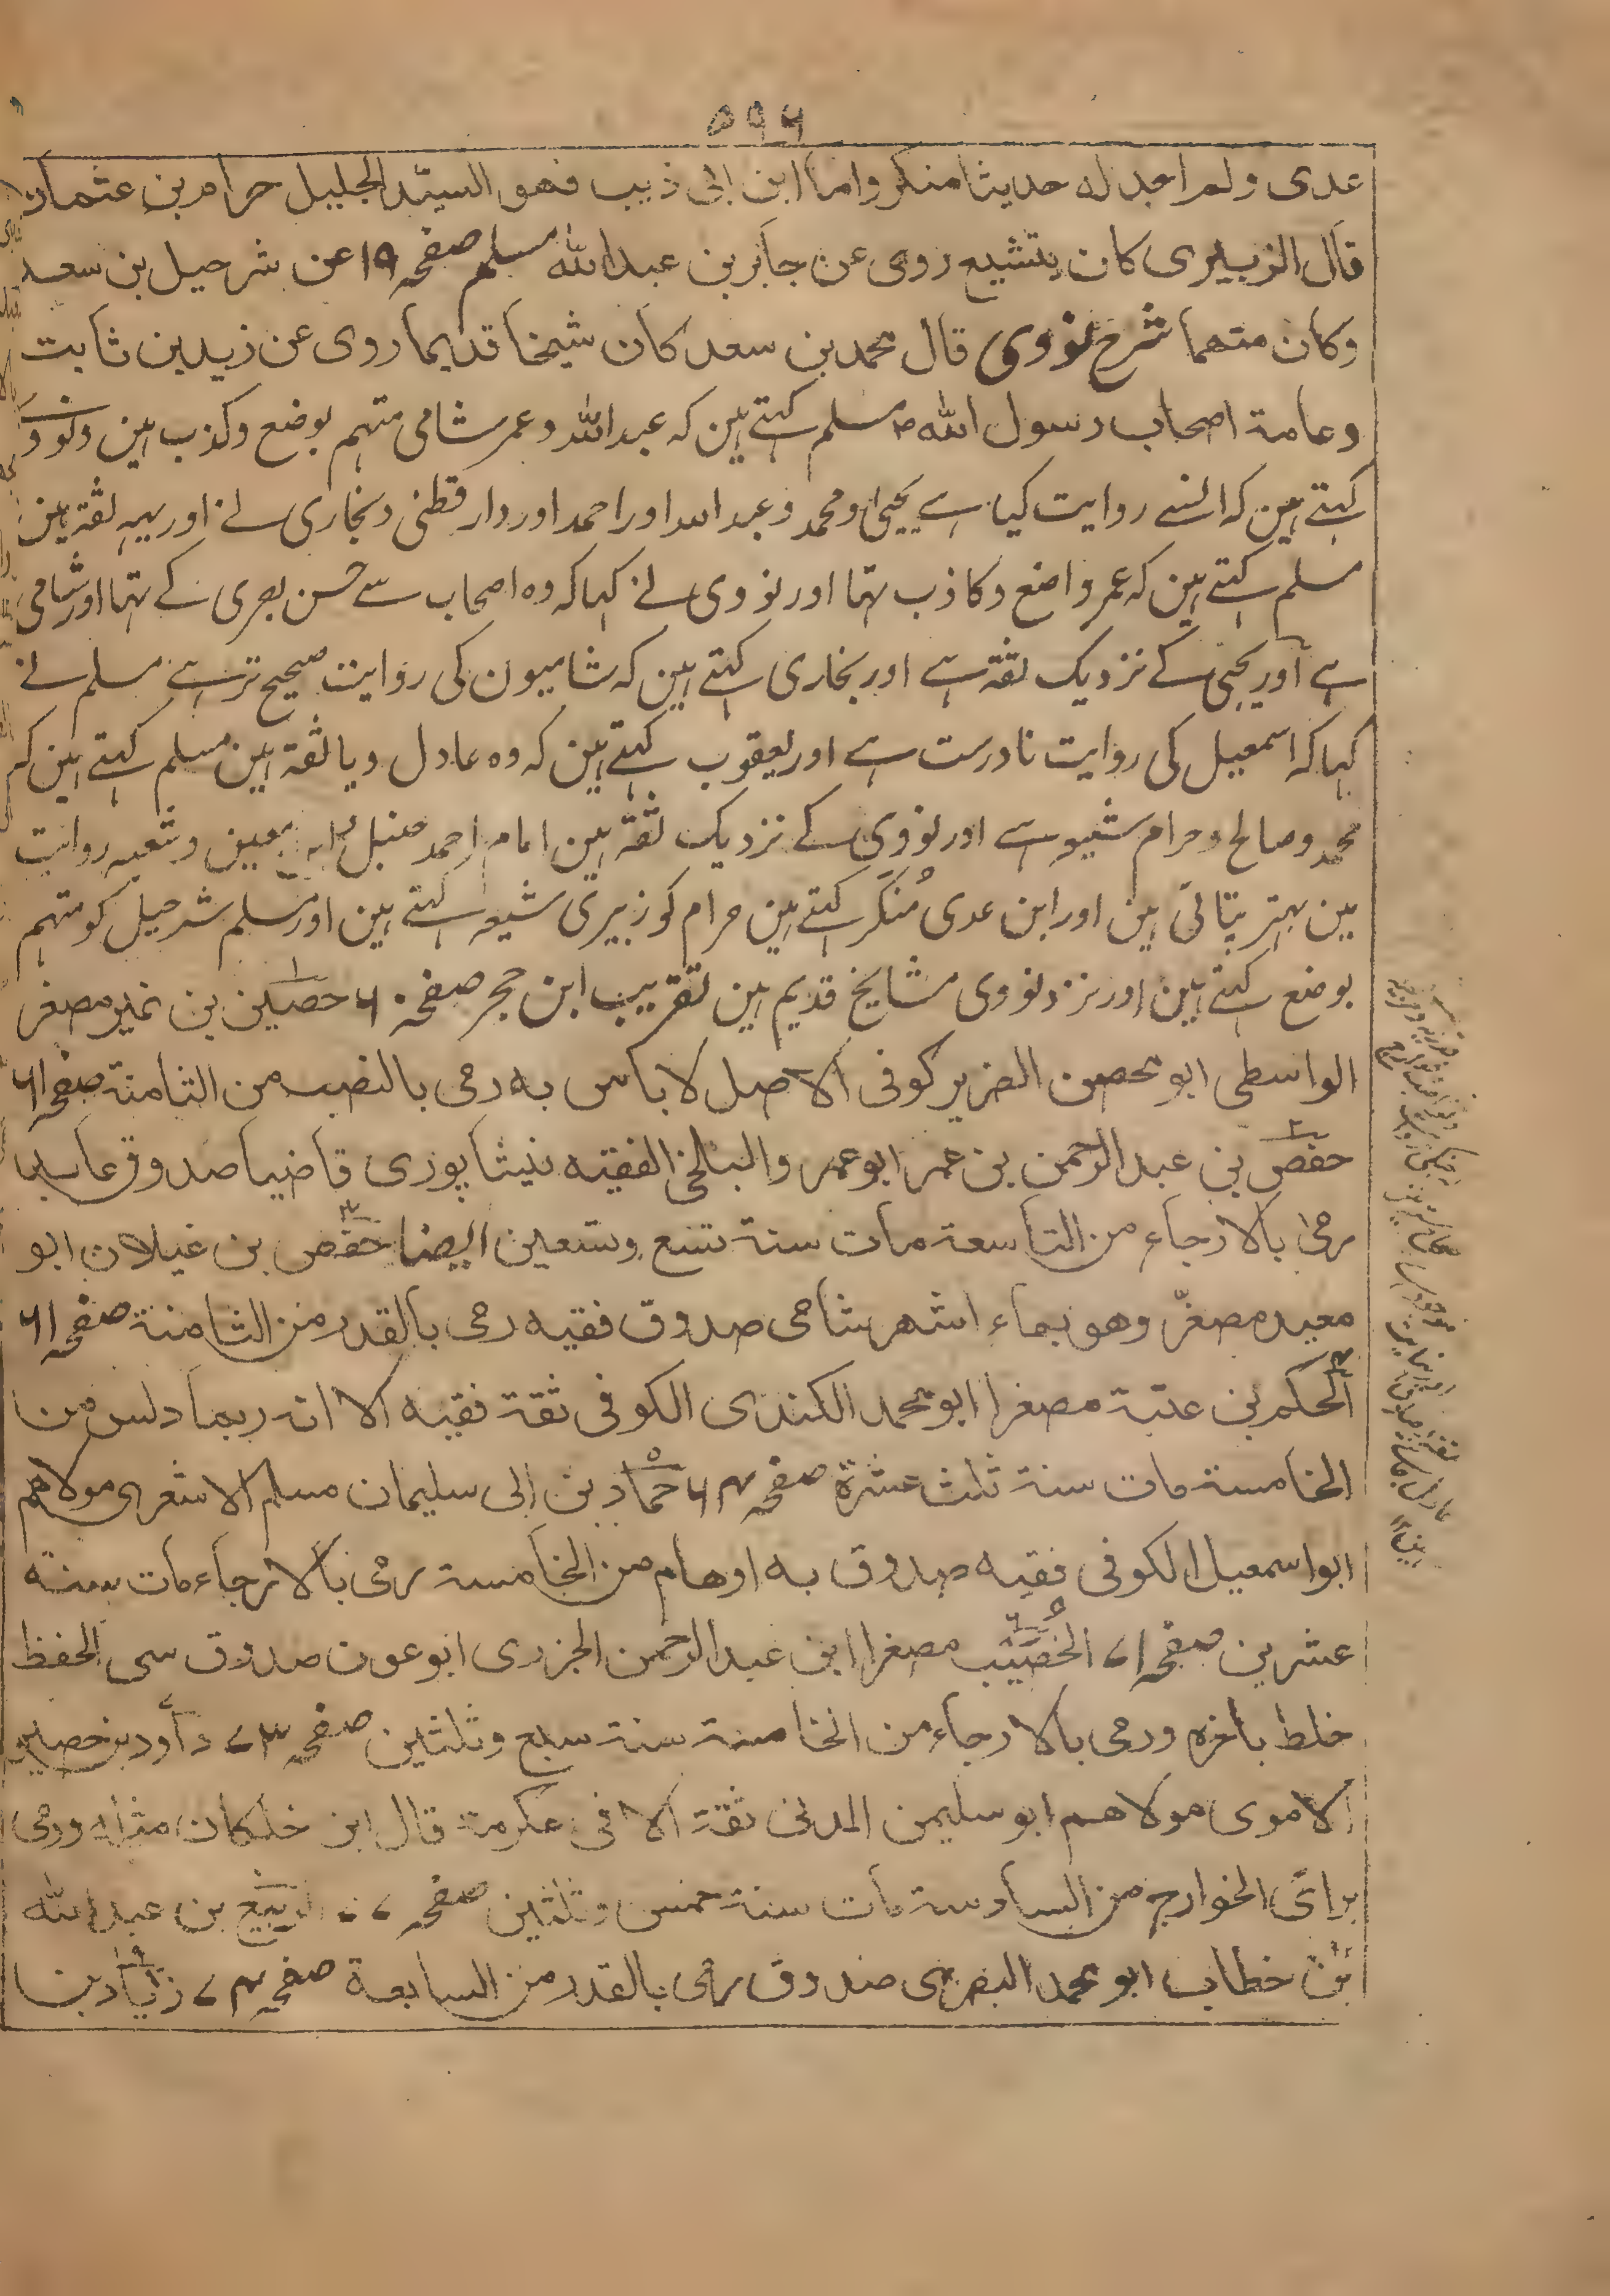 ۵۹۶
عدی ولم اجد له حدیثا منکر واما ابن ابی ذیب فهو السیّد الجلیل حرام بن عثمان
قال الزبیری کان یتشیع روی عن جابر بن عبداللہ مسلم صفحہ ۱۹ عن شرحیل بن سعد
وکان متهما شرح نووی قال محمد بن سعد کان شیخا قدیما روی عن زید بن ثابت
وعامة اصحاب رسول اللہ ص مسلم کہتے ہین کہ عبداللہ وعمر شامی متہم بوضع وکذب ہین ونووی
کہتے ہین کہ انسے روایت کیا ہے یحیی ومحمد وعبداللہ اور احمد اور دار قطنی وبخاری نے اور یہہ ثقة ہین
مسلم کہتے ہین کہ عمر واضع وکاذب تہا اور نووی نے کہا کہ وہ اصحاب سے حسن بصری کے تہا اور شامی
ہے اور یحیی کے نزدیک ثقة ہے اور بخاری کہتے ہین کہ شامیون کی روایت صحیح تر ہے مسلم نے
کہا کہ اسمعیل کی روایت نادرست ہے اور یعقوب کہتے ہین کہ وہ عادل وبا ثقة ہین مسلم کہتے ہین کہ
محمد وصالح وحرام شیعہ ہے اور نووی کے نزدیک ثقة ہین امام احمد حنبل ابن معین وشعبہ روایت
مین بہتر بتاتی ہین اور ابن عدی مُنکَر کہتے ہین حرام کو زبیری شیعہ کہتے ہین اور مسلم شرحیل کو متہم
بوضع کہتے ہین اور نزد نووی مشایخ قدیم ہین تقریب ابن حجر صفحہ ۶۰ حصین بن نمیر مصغر
الواسطی ابو محصن الضریر کوفی الاصل لا باس به رمی بالنصب من الثامنة صفحہ ۶۱
حفص بن عبد الرحمن بن عمر ابو عمر والبلخی الفقیه نیشاپوری قاضیا صدوق عابد
رمی بالارجاء من التاسعة مات سنة تسع وتسعین ایضا حفص بن غیلان ابو
معبد مصغّر وهو بماء اشهر شامی صدوق فقیه رمی بالقدر من الثامنة صفحہ ۶۱
الحکم بن عتبة مصغرا ابو محمد الکندی الکوفی ثقة فقیه الا انه ربما دلس من
الخامسة مات سنة ثلث عشرة صفحہ ۶۴ حماد بن ابی سلیمان مسلم الاشعری مولاهم
ابو اسمعیل الکوفی فقیه صدوق به اوهام من الخامسة رمی بالارجاء مات سنة
عشرین صفحہ ۷۱ الخُصَیْب مصغرا ابن عبد الرحمن الجزری ابو عون صدوق سی الحفظ
خلط باخره ورمی بالارجاء من الخامسة سنة سبع وثلثین صفحہ ۷۳ داود بن حصین
الاموی مولاهم ابو سلیمن المدنی ثقة الا فی عکرمة قال ابن خلکان مثله ورمی
برای الخوارج من السادسة مات سنة خمس وثلثین صفحہ ۷۰ الربیع بن عبداللہ
بن خطاب ابو محمد البصری صدوق رمی بالقدر من السابعة صفحہ ۷۴ زیاد بن